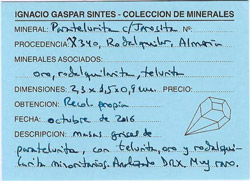 IGNACIO GASPAR SINTES - COLECCION DE MINERALES
MINERAL: Paratelurita c/Jarosita Nº:
PROCEDENCIA: X340, Rodalquilar, Almería
MINERALES ASOCIADOS:
oro, rodalquilarita, telurita
DIMENSIONES: 2,3 x 1,5 x 0,9 cm. PRECIO:
OBTENCION: Recol. propia
FECHA: octubre de 2016
DESCRIPCION: masas grises de
paratelurita, con telurita, oro y rodalqui-
larita minoritarios. Analizado DRX. Muy raro.